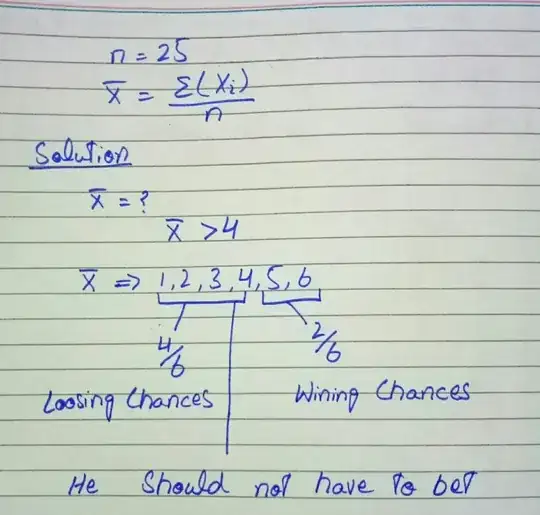 n = 25
x̄ = Σ(Xi)/n
Solution
x̄ = ?
x̄ > 4
x̄ ⇒ 1, 2, 3, 4, 5, 6
4/6 2/6
Loosing Chances Wining Chances
He Should not have to bet